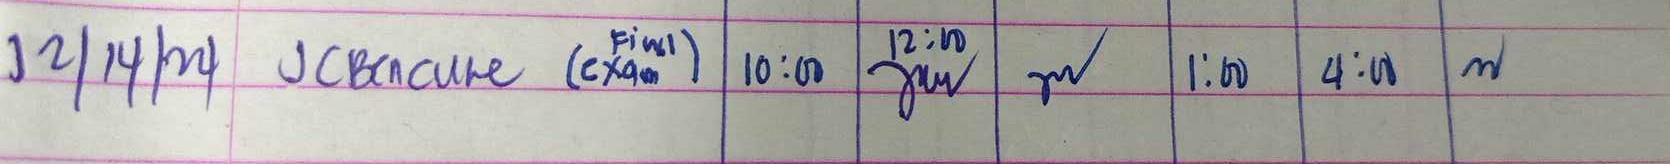 12/14/24 JCBencure (Final exam) 10:00 12:00 1:00 4:00